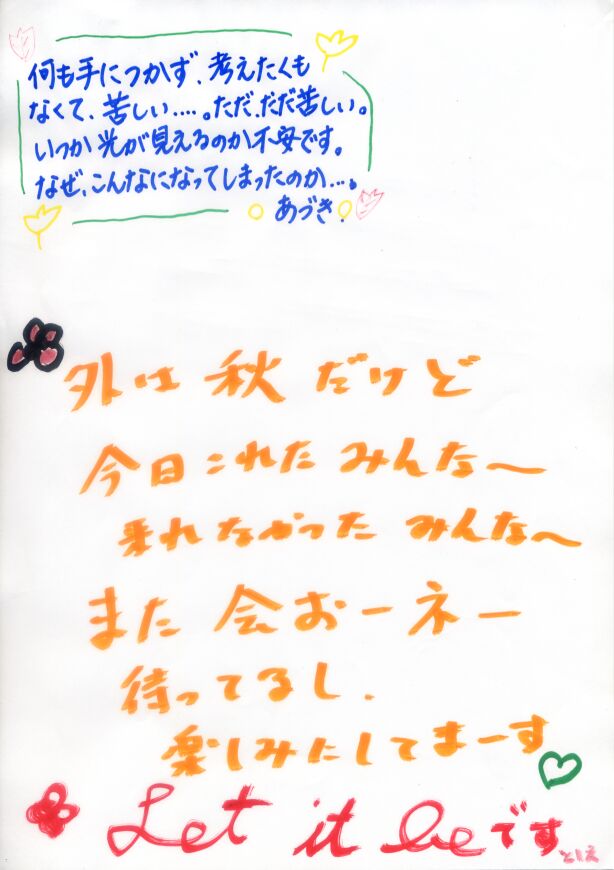 何も手につかず、考えたくも
なくて、苦しい....。ただ、ただ苦しい。
いつか光が見えるのか不安です。
なぜ、こんなになってしまったのか...。
あづき.
外は秋だけど
今日これたみんな〜
来れなかったみんな〜
また会おーネー
待ってるし、
楽しみにしてまーす
Let it beです
としえ